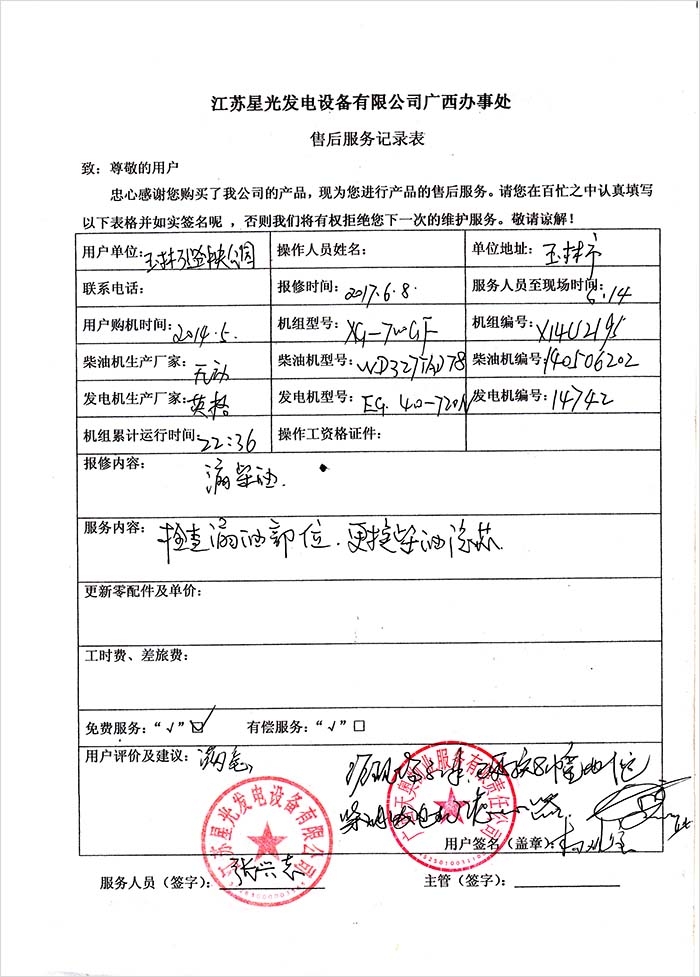 江苏星光发电设备有限公司广西办事处
售后服务记录表
致：尊敬的用户
忠心感谢您购买了我公司的产品，现为您进行产品的售后服务。请您在百忙之中认真填写
以下表格并如实签名呢，否则我们将有权拒绝您下一次的维护服务。敬请谅解！
用户单位： 操作人员姓名： 单位地址：玉林市
联系电话： 报修时间：2017.6.8. 服务人员至现场时间：6.14
用户购机时间：2014.5. 机组型号：XG-720GF 机组编号：X14U2195
柴油机生产厂家：无动 柴油机型号：WD327TAD78 柴油机编号：140506202
发电机生产厂家：英格 发电机型号：EG.400-720N 发电机编号：14742
机组累计运行时间：22:36 操作工资格证件：
报修内容：漏柴油.
服务内容：检查漏油部位.更换柴油滤芯.
更新零配件及单价：
工时费、差旅费：
免费服务：“√”☑ 有偿服务：“√”□
用户评价及建议：满意
用户签名（盖章）：
江苏星光发电设备有限公司
服务人员（签字）：张兴志 主管（签字）：